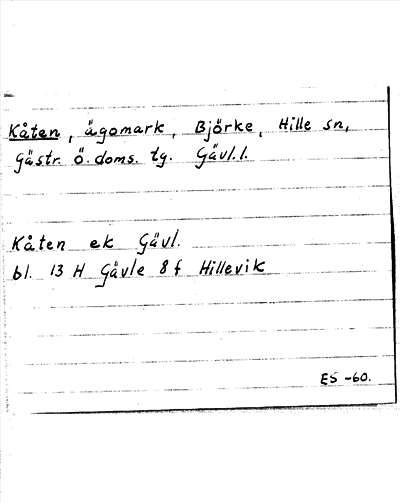 Kåten, ägomark, Björke, Hille sn,
Gästr. Ö. doms. tg. Gävl. l.
Kåten ek Gävl.
bl. 13 H Gävle 8 f Hillevik
ES -60.